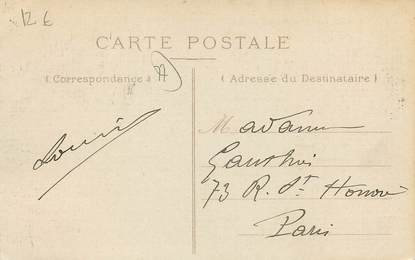 12 €
CARTE POSTALE
(Correspondance à
(Adresse du Destinataire)
Louis
Madame
Gauthier
73 R. St Honoré
Paris